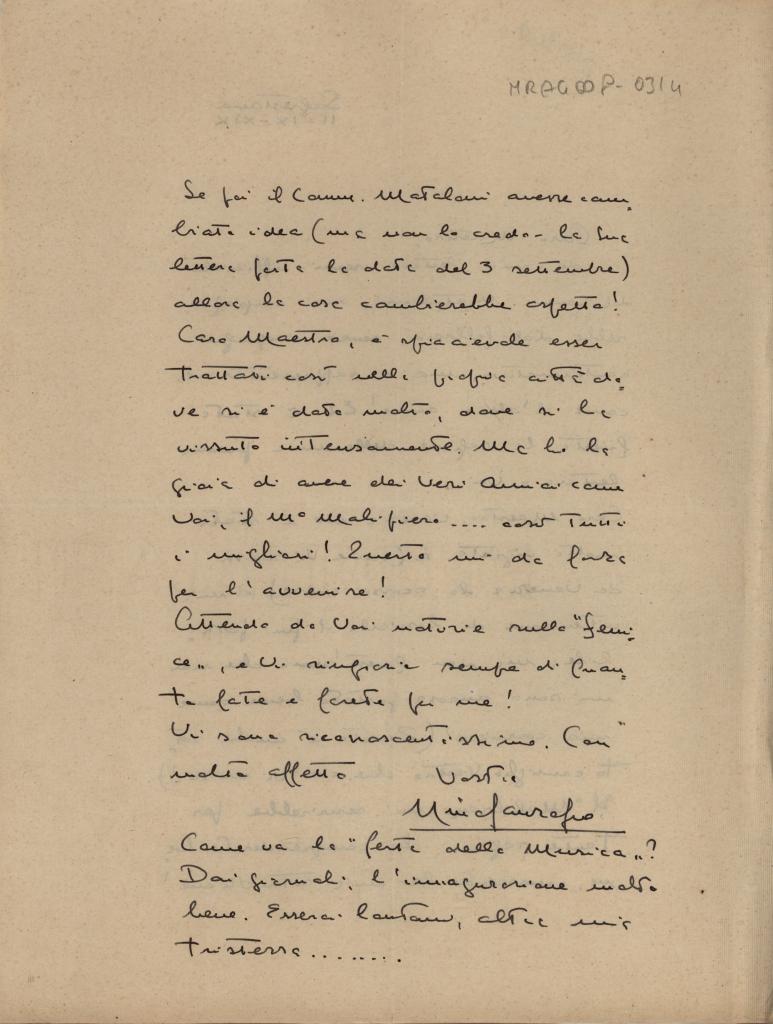 MRAGOOP-03/4
Se poi il Comm. Mataloni avesse cam-
biata idea (ma non lo credo - la Sua
lettera porta la data del 3 settembre)
allora la cosa cambierebbe aspetto!
Caro Maestro, è spiacevole esser
trattati così nella propria città do-
ve si è dato molto, dove si ha
vissuto intensamente. Ma ho la
gioia di avere dei veri Amici come
Voi, il Mº Malipiero .... così tutti
i migliori! Questo mi da forza
per l'avvenire!
Attendo da Voi notizie sulla "Feni-
ce„, e Vi ringrazio sempre di quan-
to fate e farete per me!
Vi sono riconoscentissimo. Con
molto affetto Vostro
Come va la "festa della Musica„?
Dai giornali, l'inaugurazione molto
bene. Esserci lontano, altra mia
tristezza........